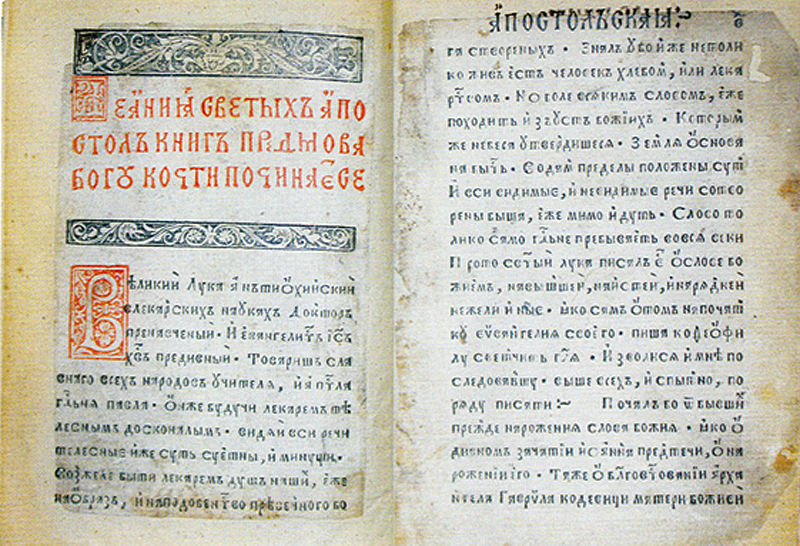 Деания светыхъ апо
столъ книг предмова
богу кочти починаетсе
Великий Лука антиохийский
влекарских науках докторъ
пренаученый · И евангелистъ ісъ
хсвъ предивный · Товаришъ сла
внаго всехъ народов учителя, ина апостла
павла · Он же будучи лекарем те
лесным досконалымъ · видя иvси речи
телесные иже суть суетны, и минущи ·
Возжеле быти лекаремъ душъ наши, еже
на образъ, и на подобенство превечного бо
апостольская · в
га створеных · Зналъ убо иже не толи
ко живъ естъ человекъ хлебом, или лека
рством · Но боле всяким словом, еже
походить и зъустъ божиих · Которым
же небеса утвердишеся · Земля основа
на бытъ · Водам пределы положены суть
И вси видимые, и невидимые речи сотво
рены быша, еже мимо идуть · Слово то
лико само гдьне пребываеть вовся веки
Про то светый лука писалъ е о слове бо
жием, навышшей, наистей, и нарядней
нежели ины · яко самъ о том на початк
ку евангелия своего · пиша ко феофи
лу светчие гля · Изволися и мне по
следовавшу · выше всехъ, и спытно, по
ряду писати :~ Почалъ бо от вышшй
прежде нарожения слова божия · яко о
дивном зачатии иоанна предтечи, о на
рожении его · Тяже о благовествовании арха
нгела гавриила кодевици матери божией